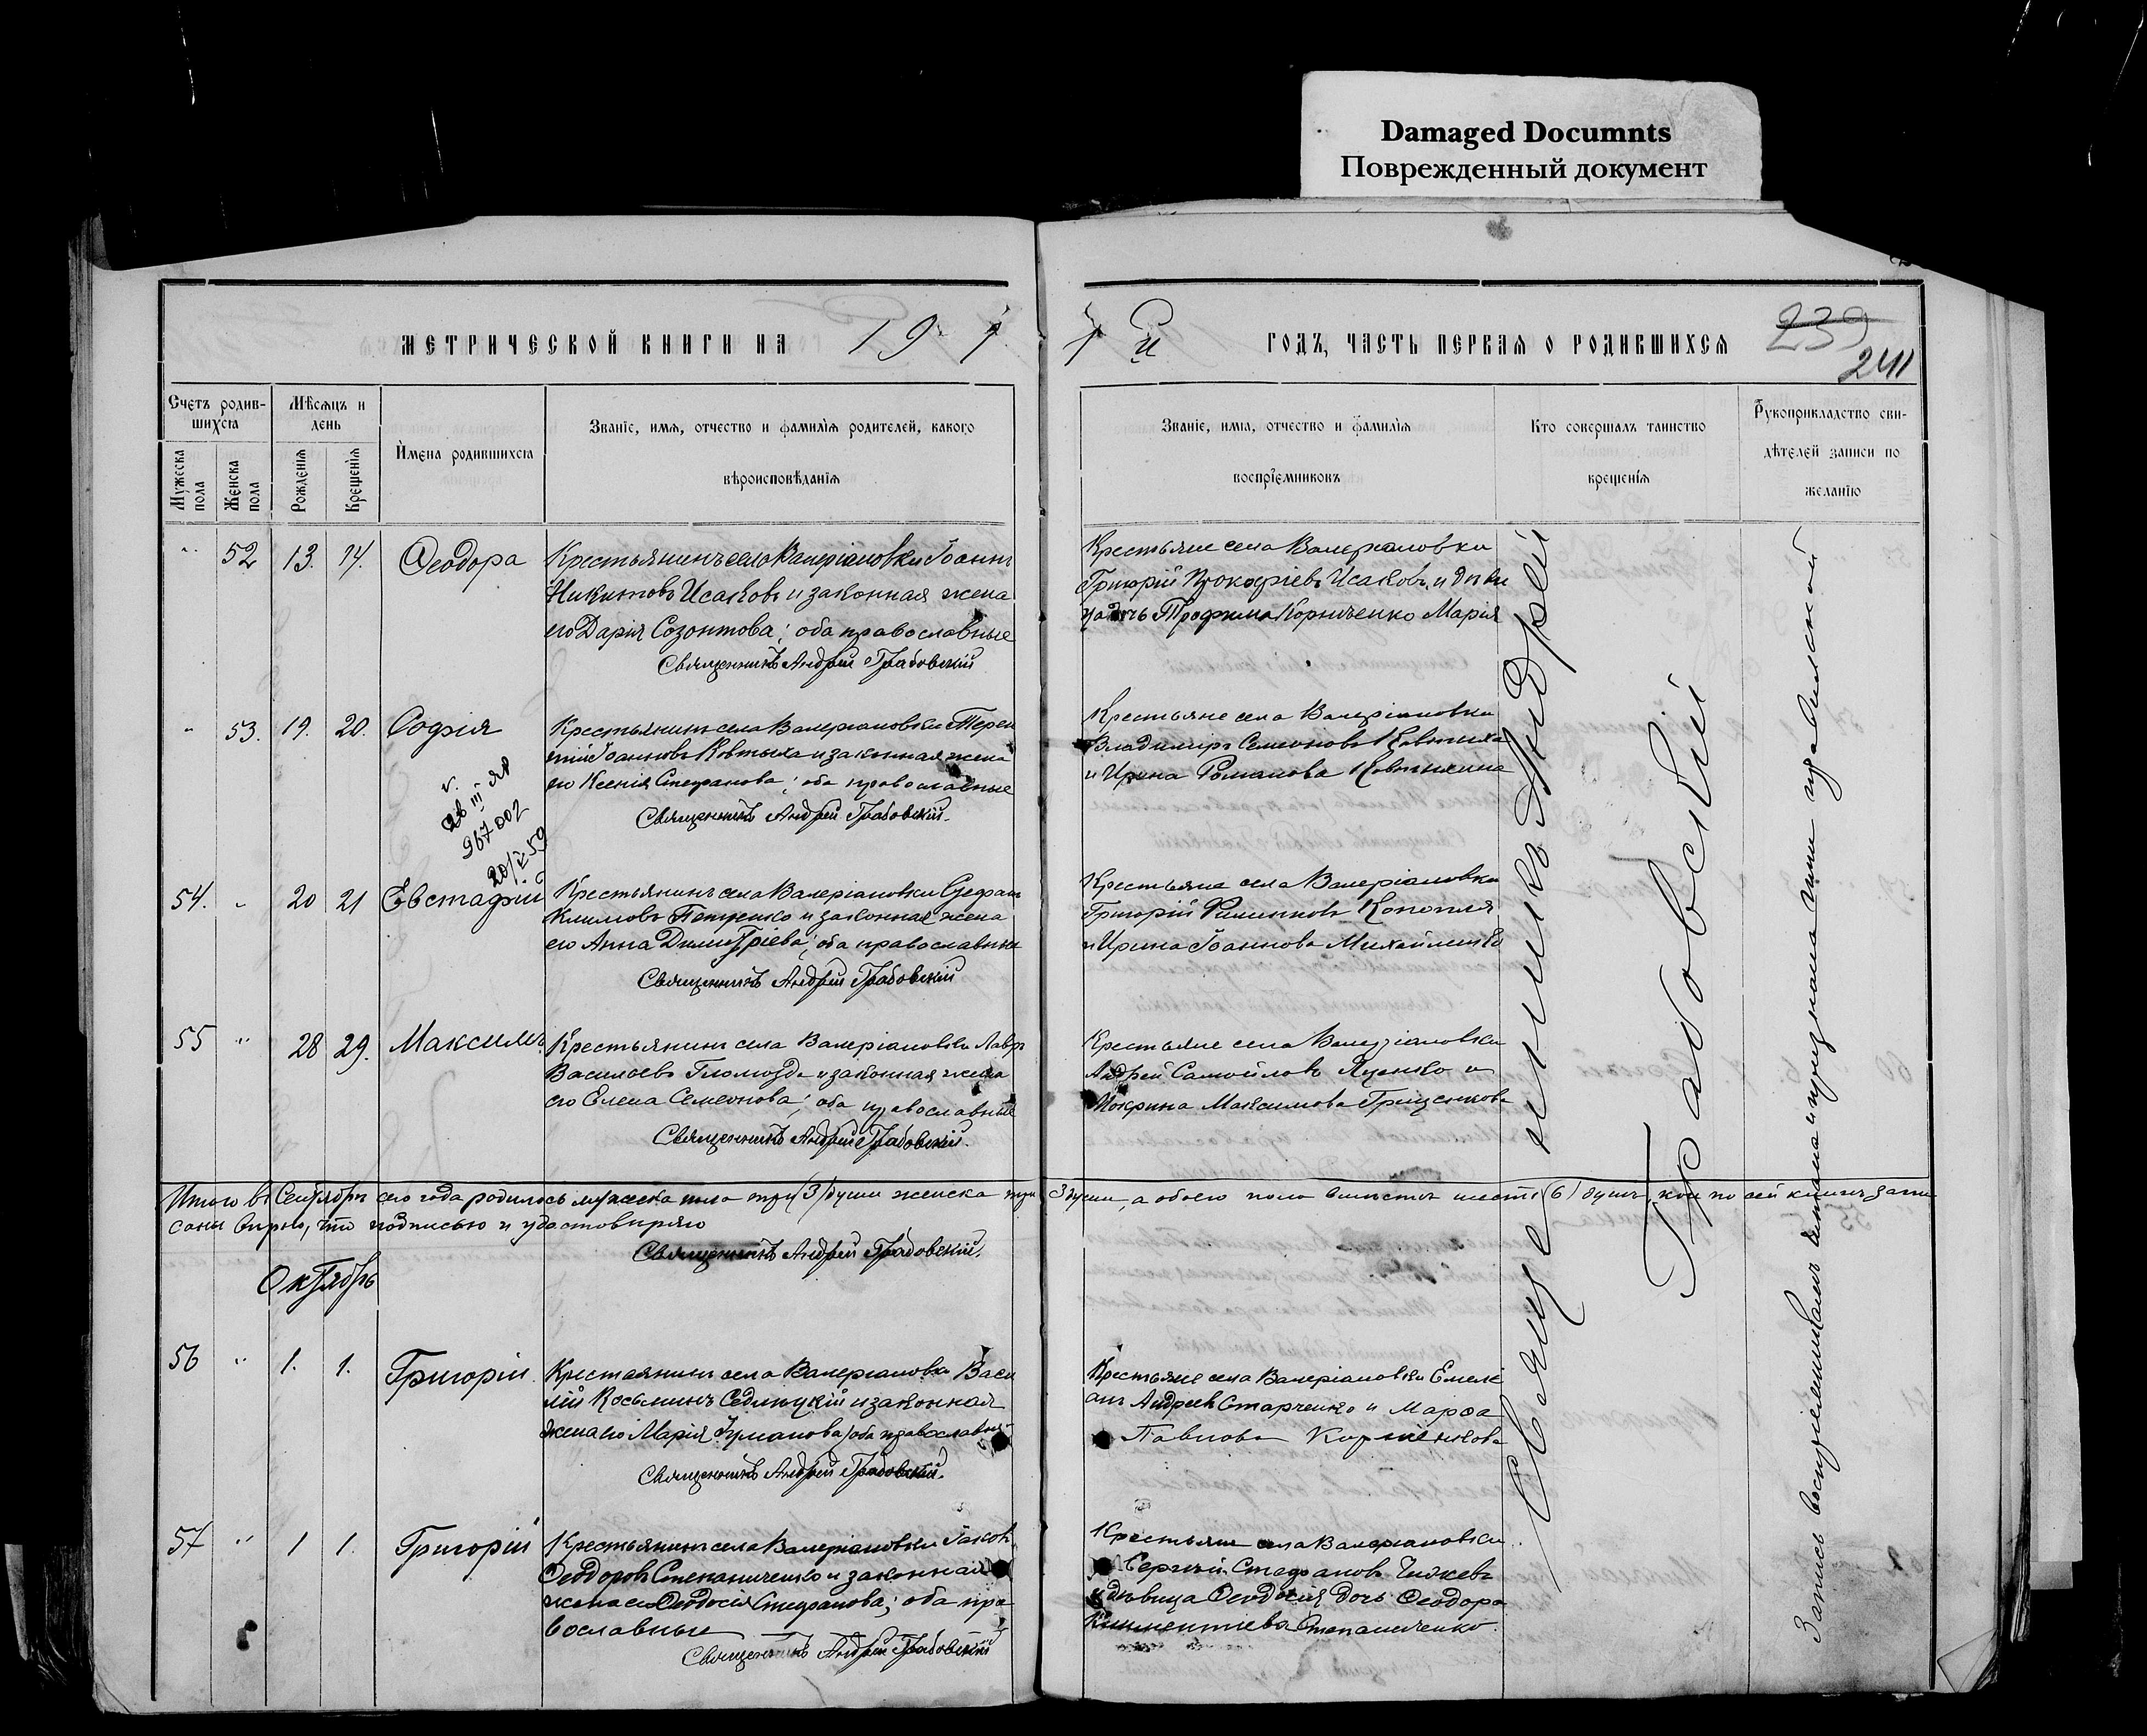 Damaged Documnts
Поврежденный документ
МЕТРИЧЕСКОЙ КНИГИ НА 19
ГОДЪ, ЧАСТЬ ПЕРВАЯ О РОДИВШИХСЯ
239
241
Счетъ родив-
шихся
Мужеска
пола
Женска
пола
Мѣсяцъ и
день
Рожденія
Крещенія
Имена родившихся
Званіе, имя, отчество и фамилія родителей, какого
вѣроисповѣданія
Званіе, имя, отчество и фамилія
воспріемниковъ
Кто совершалъ таинство
крещенія
Рукоприкладство сви-
дѣтелей записи по
желанію
52 13. 14. Ѳеодора
Крестьянинъ села Валеріановки Іоаннъ
Никитовъ Исаковъ и законная жена
его Дарія Созонтова; оба православные
Священникъ Андрей Грабовскій
Крестьяне села Валеріановки
Григорій Прокофіевъ Исаковъ и дѣви
ца дочь Трофима Корниченко Марія
53. 19. 20. Софія
Крестьянинъ села Валеріановки Терен
тій Іоанновъ Ковтыха и законная жена
его Ксенія Стефанова; оба православные
Священникъ Андрей Грабовскій.
967002
Крестьяне села Валеріановки
Владимиръ Семеоновъ Ковтыха
и Ирина Романова Ковтыхина
54. 20 21 Евстафій
Крестьянинъ села Валеріановки Стефанъ
Климовъ Петренко и законная жена
его Анна Димитріева; оба православные
Священникъ Андрей Грабовскій
Крестьяне села Валеріановки
Григорій Филипповъ Конопля
и Ирина Іоаннова Михайленко
55 28 29. Максимъ
Крестьянинъ села Валеріановки Лавръ
Васильевъ и законная жена
его Елена Семеонова; оба православные
Священникъ Андрей Грабовскій.
Крестьяне села Валеріановки
Андрей Самойловъ Яценко и
Максимова Грищенкова
Итого въ Сентябрѣ сего года родилось мужеска пола три (3) души женска три 3 души, а обоего пола вмѣстѣ шесть (6) душъ, кои по сей книгѣ запи
саны вѣрно, что подписью и удостовѣряю
Священникъ Андрей Грабовскій.
Октябрь
56 1. 1. Григорій
Крестьянинъ села Валеріановки Васи
лій Косьминъ Седлецкій и законная
жена его Марія оба православные
Священникъ Андрей Грабовскій.
Крестьяне села Валеріановки Емелі
анъ Андреевъ Старченко и Марѳа
Павлова
57 1 1. Григорій
Крестьянинъ села Валеріановки Іаковъ
Ѳеодоровъ Степаниченко и законная
жена его Ѳеодосія Стефанова; оба пра
вославные
Священникъ Андрей Грабовскій
Крестьяне села Валеріановки
Сергій Стефановъ
и дѣвица Ѳеодосія дочь Ѳеодора
Климентіева Степаниченко
Священникъ Андрей
Грабовскій
Запись воспріемникамъ читана и признана ими правильной